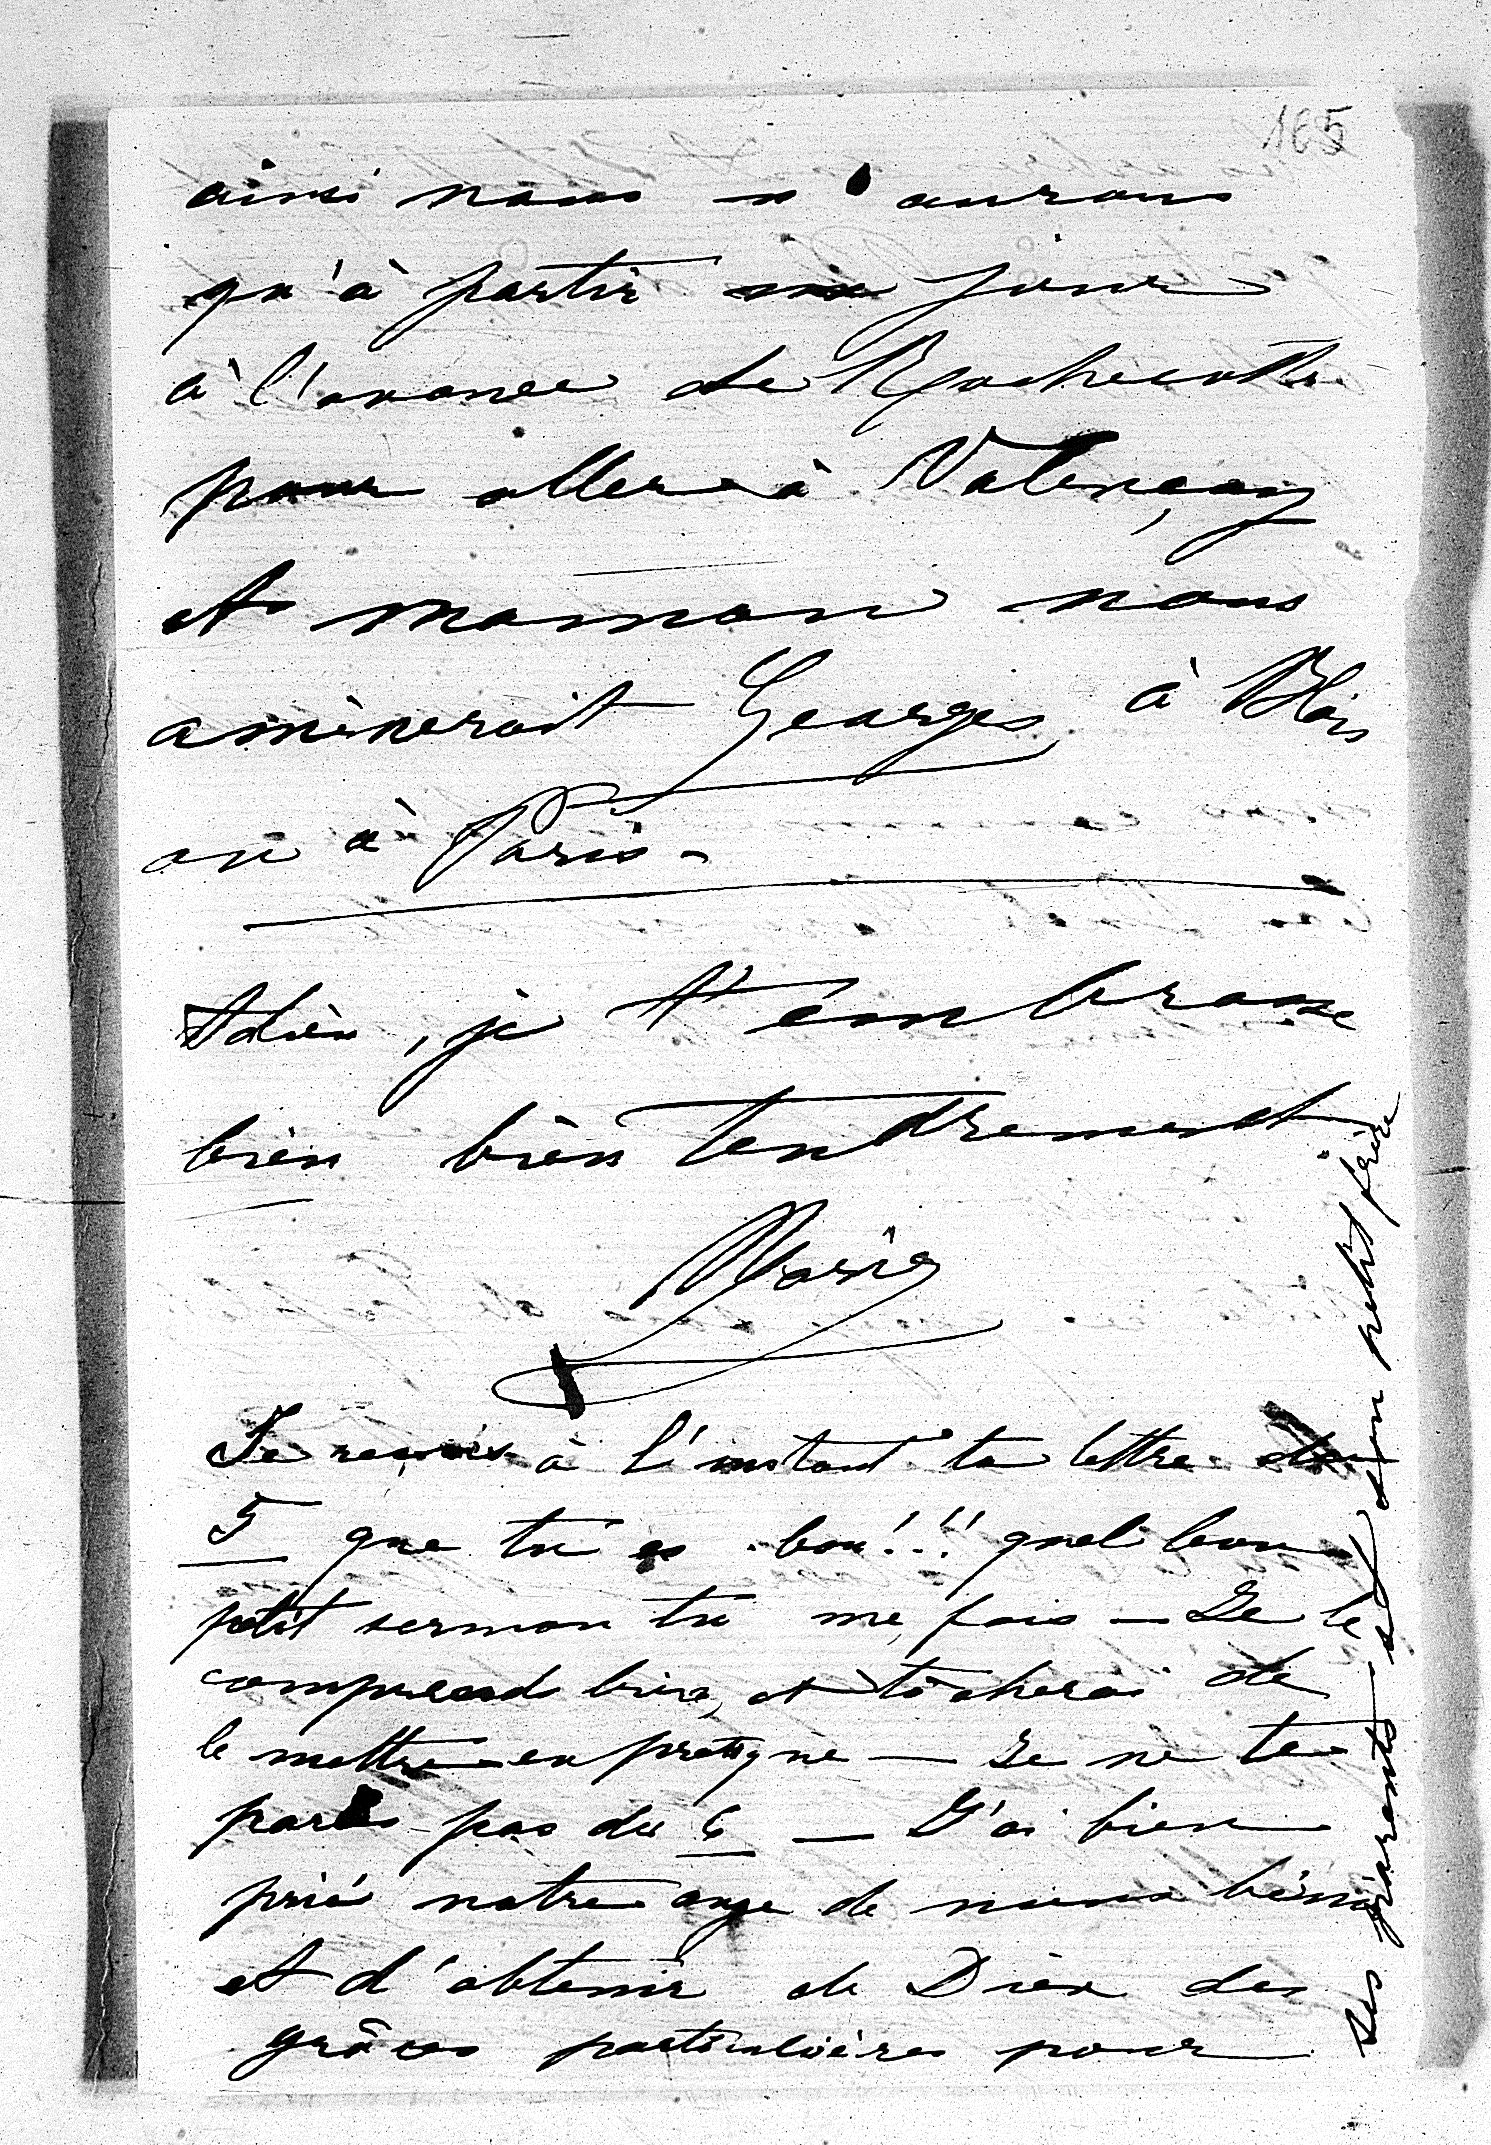 165
ainsi nous n'aurons
qu'à partir un jour
à l'avance de Rochecotte
pour aller à Valençay
et maman nous
amènerait Georges à Blois
ou à Paris -
Adieu, je t'embrasse
bien bien tendrement
Marie
Je reçois à l'instant ta lettre du
5 que tu es bon!!! quel bon
petit sermon tu me fais — Je le
comprends bien, et tâcherai de
le mettre en pratique — Je ne te
parle pas du 6 — J'ai bien
prié notre ange de nous bénir
et d'obtenir de Dieu des
grâces particulières pour
ses parents et son petit frère